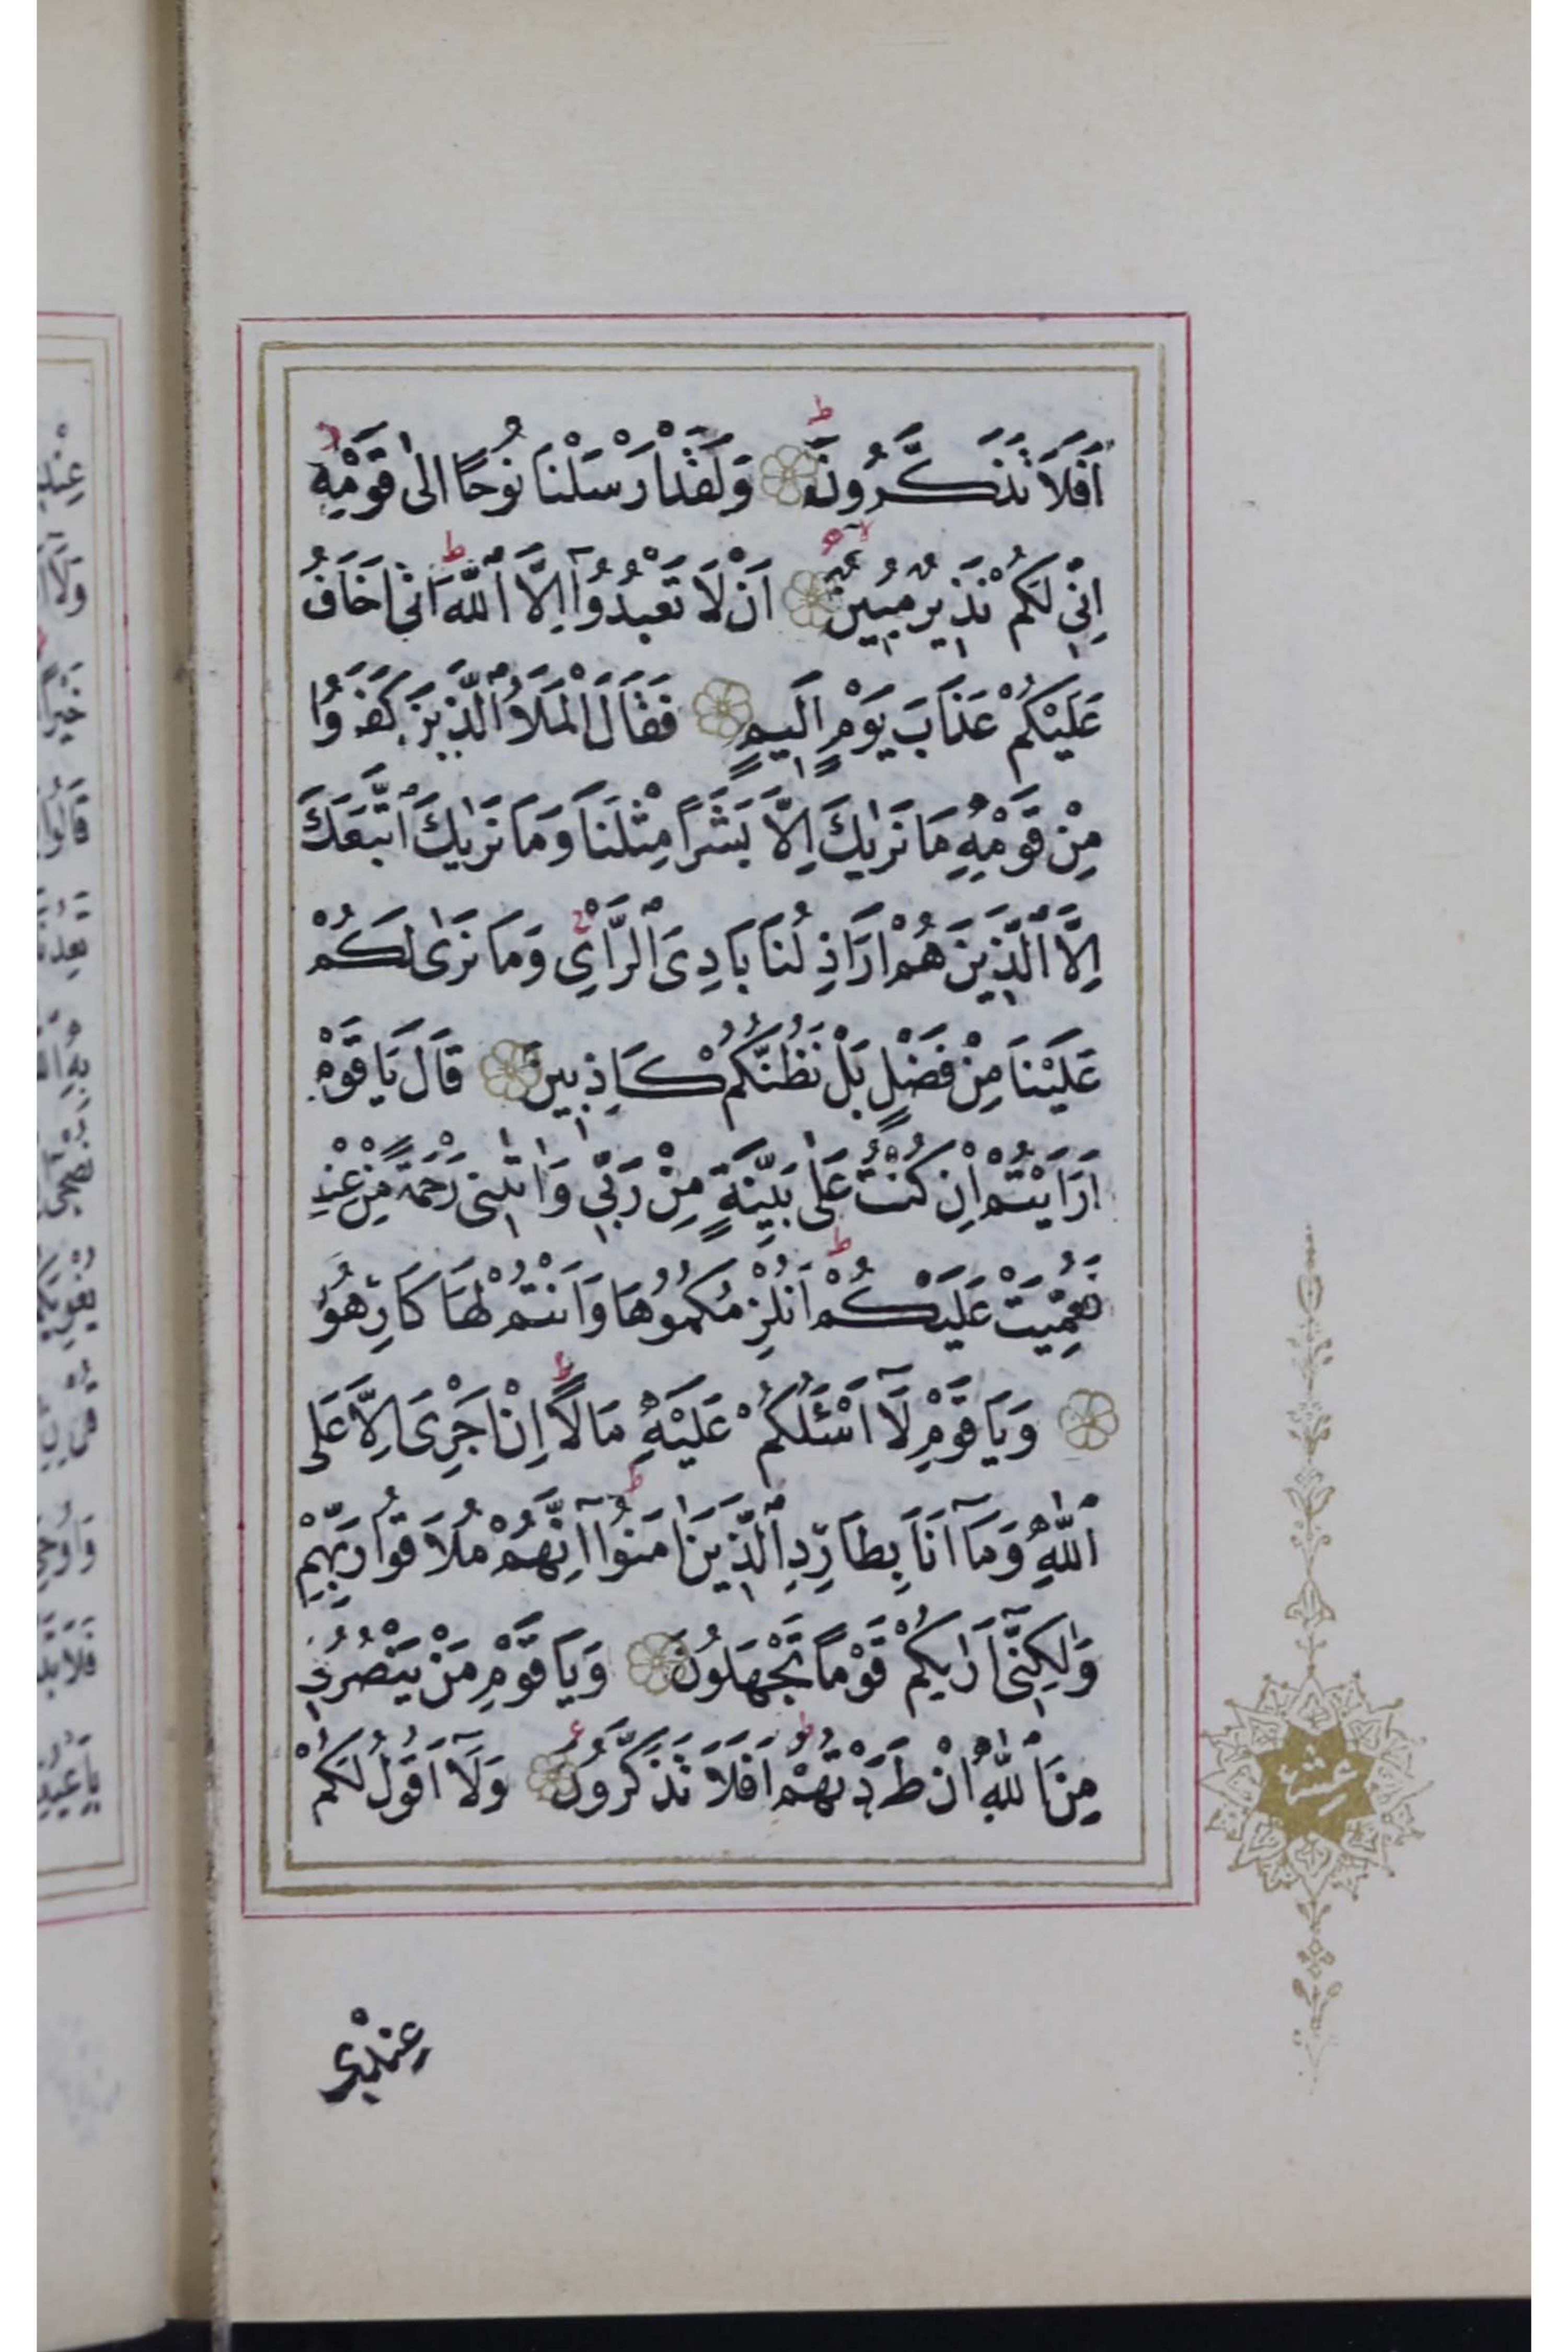 اَفَلَا تَذَكَّرُونَ وَلَقَدْ اَرْسَلْنَا نُوحًا اِلٰى قَوْمِهِ
اِنّ۪ي لَكُمْ نَذ۪يرٌ مُب۪ينٌ اَنْ لَا تَعْبُدُٓوا اِلَّا ٱللّٰهَ اِنّ۪ي اَخَافُ
عَلَيْكُمْ عَذَابَ يَوْمٍ اَل۪يمٍ فَقَالَ الْمَلَاُ ٱلَّذ۪ينَ كَفَرُوا
مِنْ قَوْمِهِ مَا نَرٰيكَ اِلَّا بَشَرًا مِثْلَنَا وَمَا نَرٰيكَ ٱتَّبَعَكَ
اِلَّا ٱلَّذ۪ينَ هُمْ اَرَاذِلُنَا بَادِىَ ٱلرَّاْىِ وَمَا نَرٰى لَكُمْ
عَلَيْنَا مِنْ فَضْلٍ بَلْ نَظُنُّكُمْ كَاذِب۪ينَ قَالَ يَا قَوْمِ
اَرَاَيْتُمْ اِنْ كُنْتُ عَلٰى بَيِّنَةٍ مِنْ رَبّ۪ي وَاٰتٰين۪ي رَحْمَةً مِنْ عِنْدِهِ
فَعُمِّيَتْ عَلَيْكُمْ اَنُلْزِمُكُمُوهَا وَاَنْتُمْ لَهَا كَارِهُونَ
وَيَا قَوْمِ لَٓا اَسْـَٔلُكُمْ عَلَيْهِ مَالًا اِنْ اَجْرِىَ اِلَّا عَلَى
ٱللّٰهِ وَمَٓا اَنَا بِطَارِدِ ٱلَّذ۪ينَ اٰمَنُٓوا اِنَّهُمْ مُلَاقُوا رَبِّهِمْ
وَلٰكِنّ۪ٓي اَرٰيكُمْ قَوْمًا تَجْهَلُونَ وَيَا قَوْمِ مَنْ يَنْصُرُن۪ي
مِنَ ٱللّٰهِ اِنْ طَرَدْتُهُمْ اَفَلَا تَذَكَّرُونَ وَلَٓا اَقُولُ لَكُمْ
عشر
عِنْد۪ي